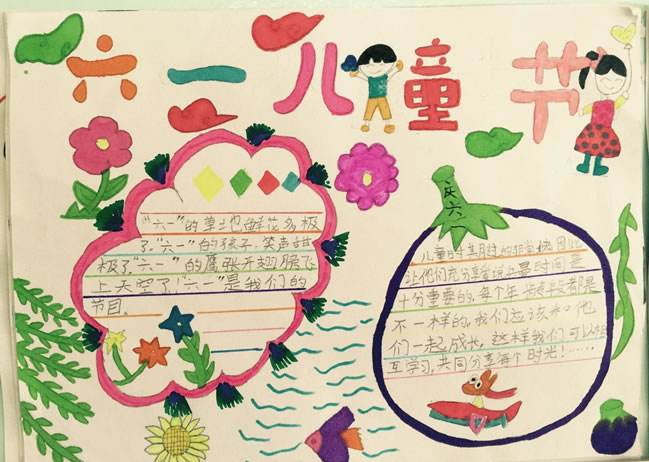 六一儿童节
"六一"的草地鲜花多极
了,"六一"的孩子,笑声甜
极了,"六一"的 张开翅膀飞
上天空了!"六一"是我们的
节日。
庆六一
儿童
让他们充分享 时间是
十分重要的,每个年 都是
不一样的,我们应该和他
们一起成长,这样我们可以相
互学习,共同分享每个时光!……